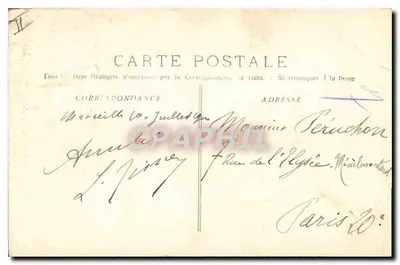 II
CARTE POSTALE
Tous les Pays étrangers n'acceptent pas la Correspondance au recto. - Se renseigner à la Poste
CORRESPONDANCE
ADRESSE
Marseille 10 Juillet
Amitiés
L.
Monsieur Péruchon
7 Rue de l'Elysée-Ménilmontant
Paris 20e
CARTAPHILIA